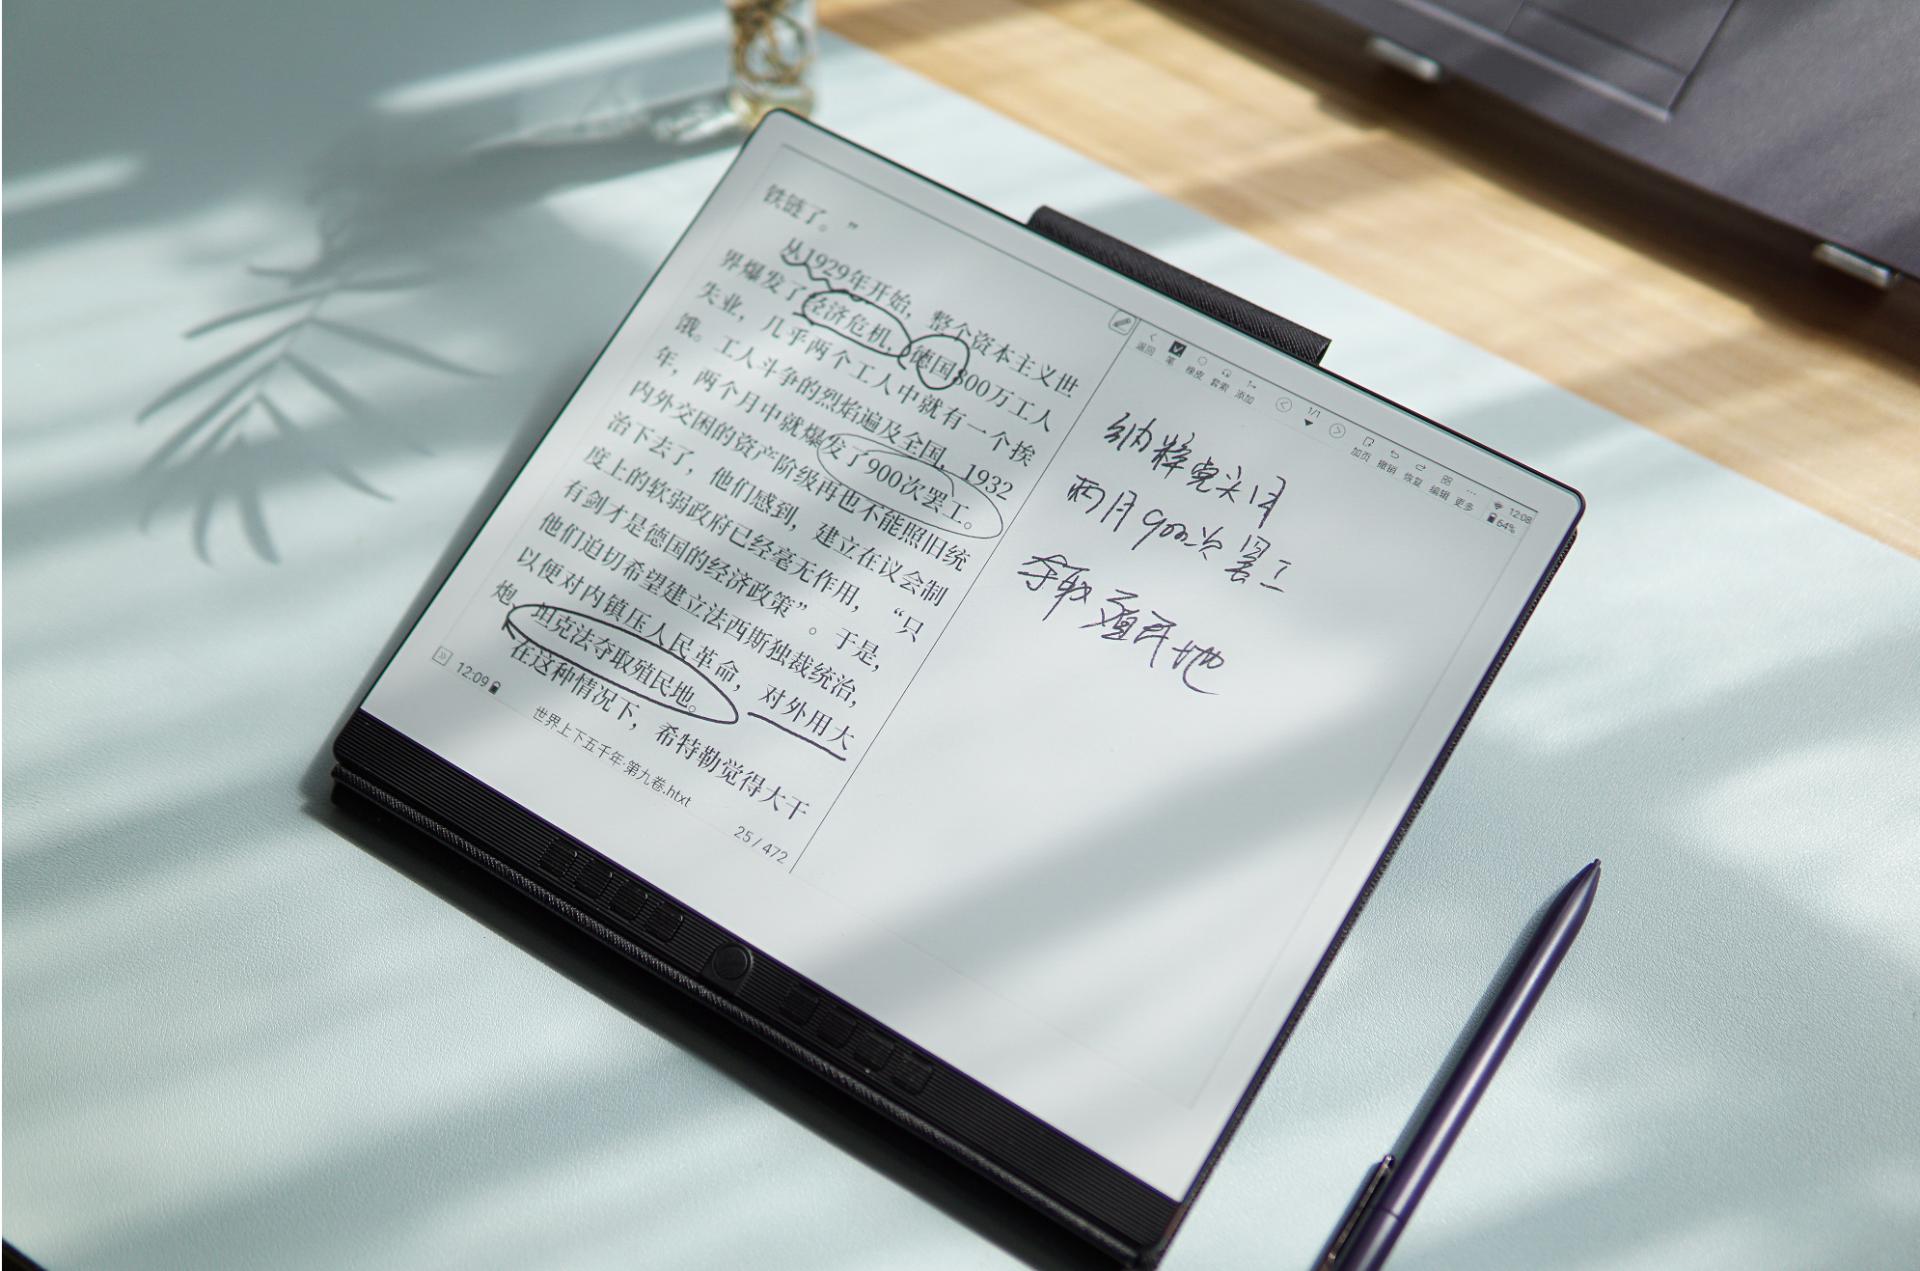 铁链了。”
从1929年开始，整个资本主义世
界爆发了经济危机，德国800万工人
失业，几乎两个工人中就有一个挨
饿。工人斗争的烈焰遍及全国，1932
年，两个月中就爆发了900次罢工。
内外交困的资产阶级再也不能照旧统
治下去了，他们感到，建立在议会制
度上的软弱政府已经毫无作用，“只
有剑才是德国的经济政策”。于是，
他们迫切希望建立法西斯独裁统治，
以便对内镇压人民革命，对外用大
炮、坦克法夺取殖民地。
在这种情况下，希特勒觉得大干
12:09
世界上下五千年·第九卷.htxt
25 / 472
返回 笔 橡皮 套索 添加 1/1 加页 撤销 恢复 编辑 更多
12:08
64%
纳粹党头目
两月900次罢工
夺取殖民地